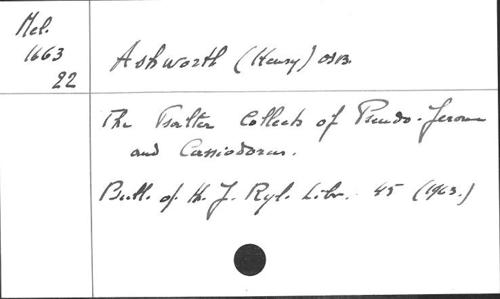 Mel.
1663
22
Ashworth (Henry) OSB.
The Psalter Collects of Pseudo-Jerome
and Cassiodorus.
Bull. of th. J. Ryl. Libr. 45 (1963.)